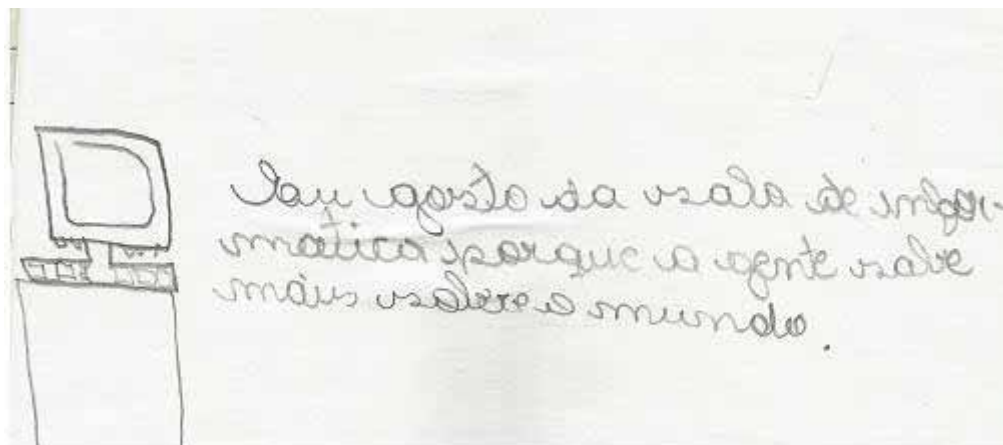 Eu gosto da sala de infor-
mática porque a gente sabe
mais sobre o mundo.